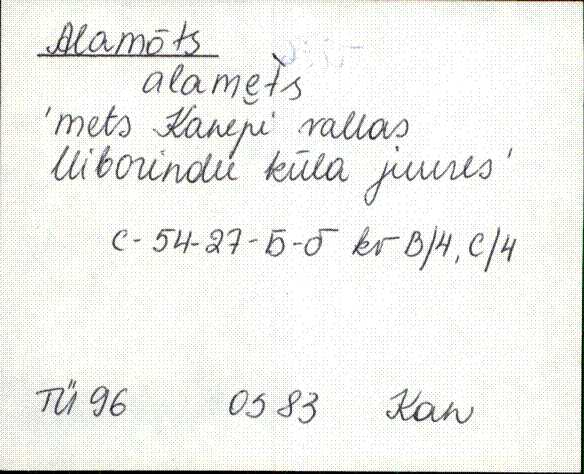 Alamõts
alamet̀s
'mets Kanepi vallas
küla juures'
C-54-27-Б-б kv B/4, C/4
TÜ 96 0583 Kan